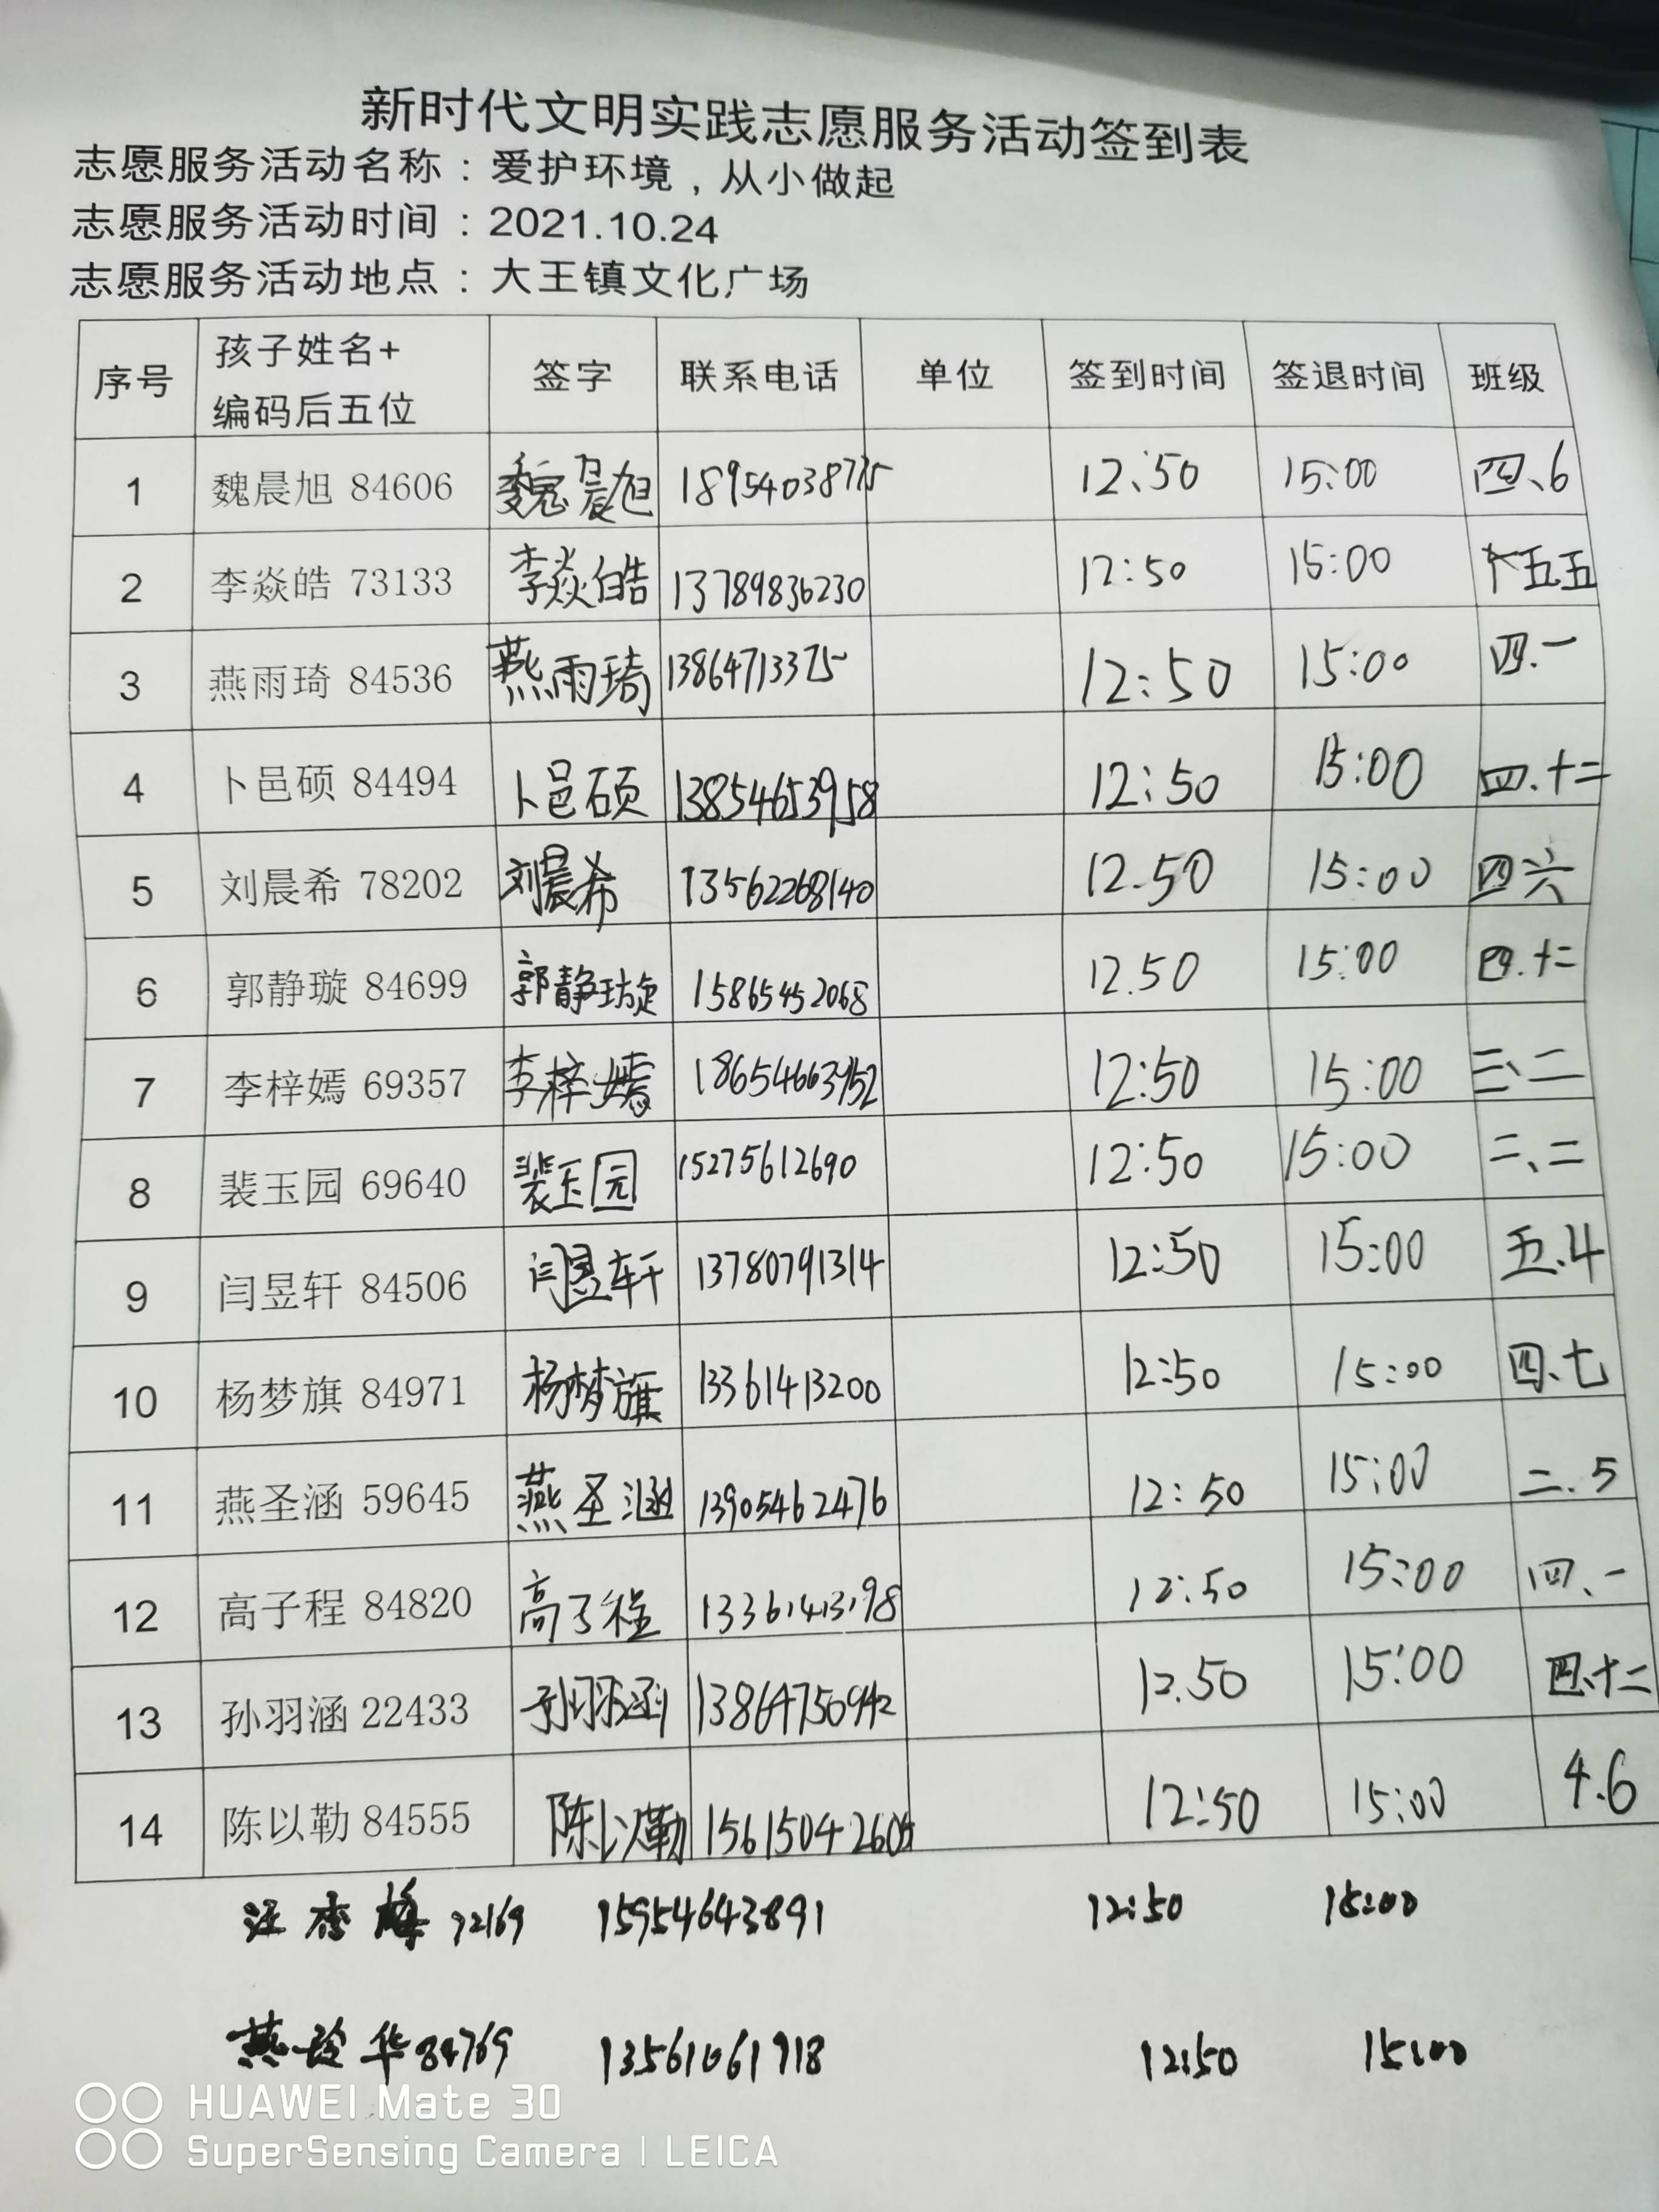 新时代文明实践志愿服务活动签到表
志愿服务活动名称：爱护环境，从小做起
志愿服务活动时间：2021.10.24
志愿服务活动地点：大王镇文化广场
序号 孩子姓名+编码后五位 签字 联系电话 单位 签到时间 签退时间 班级
1 魏晨旭 84606 魏晨旭 12:50 15:00 四、6
2 李焱皓 73133 李焱皓 13789836230 12:50 15:00 五五
3 燕雨琦 84536 燕雨琦 12:50 15:00 四.一
4 卜邑硕 84494 卜邑硕 13854653958 12:50 15:00 四.十二
5 刘晨希 78202 刘晨希 13562268140 12.50 15:00 四六
6 郭静璇 84699 郭静璇 15865452068 12.50 15:00 四.十二
7 李梓嫣 69357 李梓嫣 12:50 15:00 三、二
8 裴玉园 69640 裴玉园 15275612690 12:50 15:00 二、二
9 闫昱轩 84506 闫昱轩 13780791314 12:50 15:00 五.4
10 杨梦旗 84971 杨梦旗 13361413200 12:50 15:00 四、七
11 燕圣涵 59645 燕圣涵 13905462476 12:50 15:00 二.5
12 高子程 84820 高子程 13361413198 12:50 15:00 四、一
13 孙羽涵 22433 孙羽涵 13864750942 12.50 15:00 四.十二
14 陈以勒 84555 陈以勒 12:50 15:00 4.6
汪杏梅 72169 15954643891 12:50 15:00
燕玲华 84769 13561061718 12:50 15:00
HUAWEI Mate 30
SuperSensing Camera | LEICA